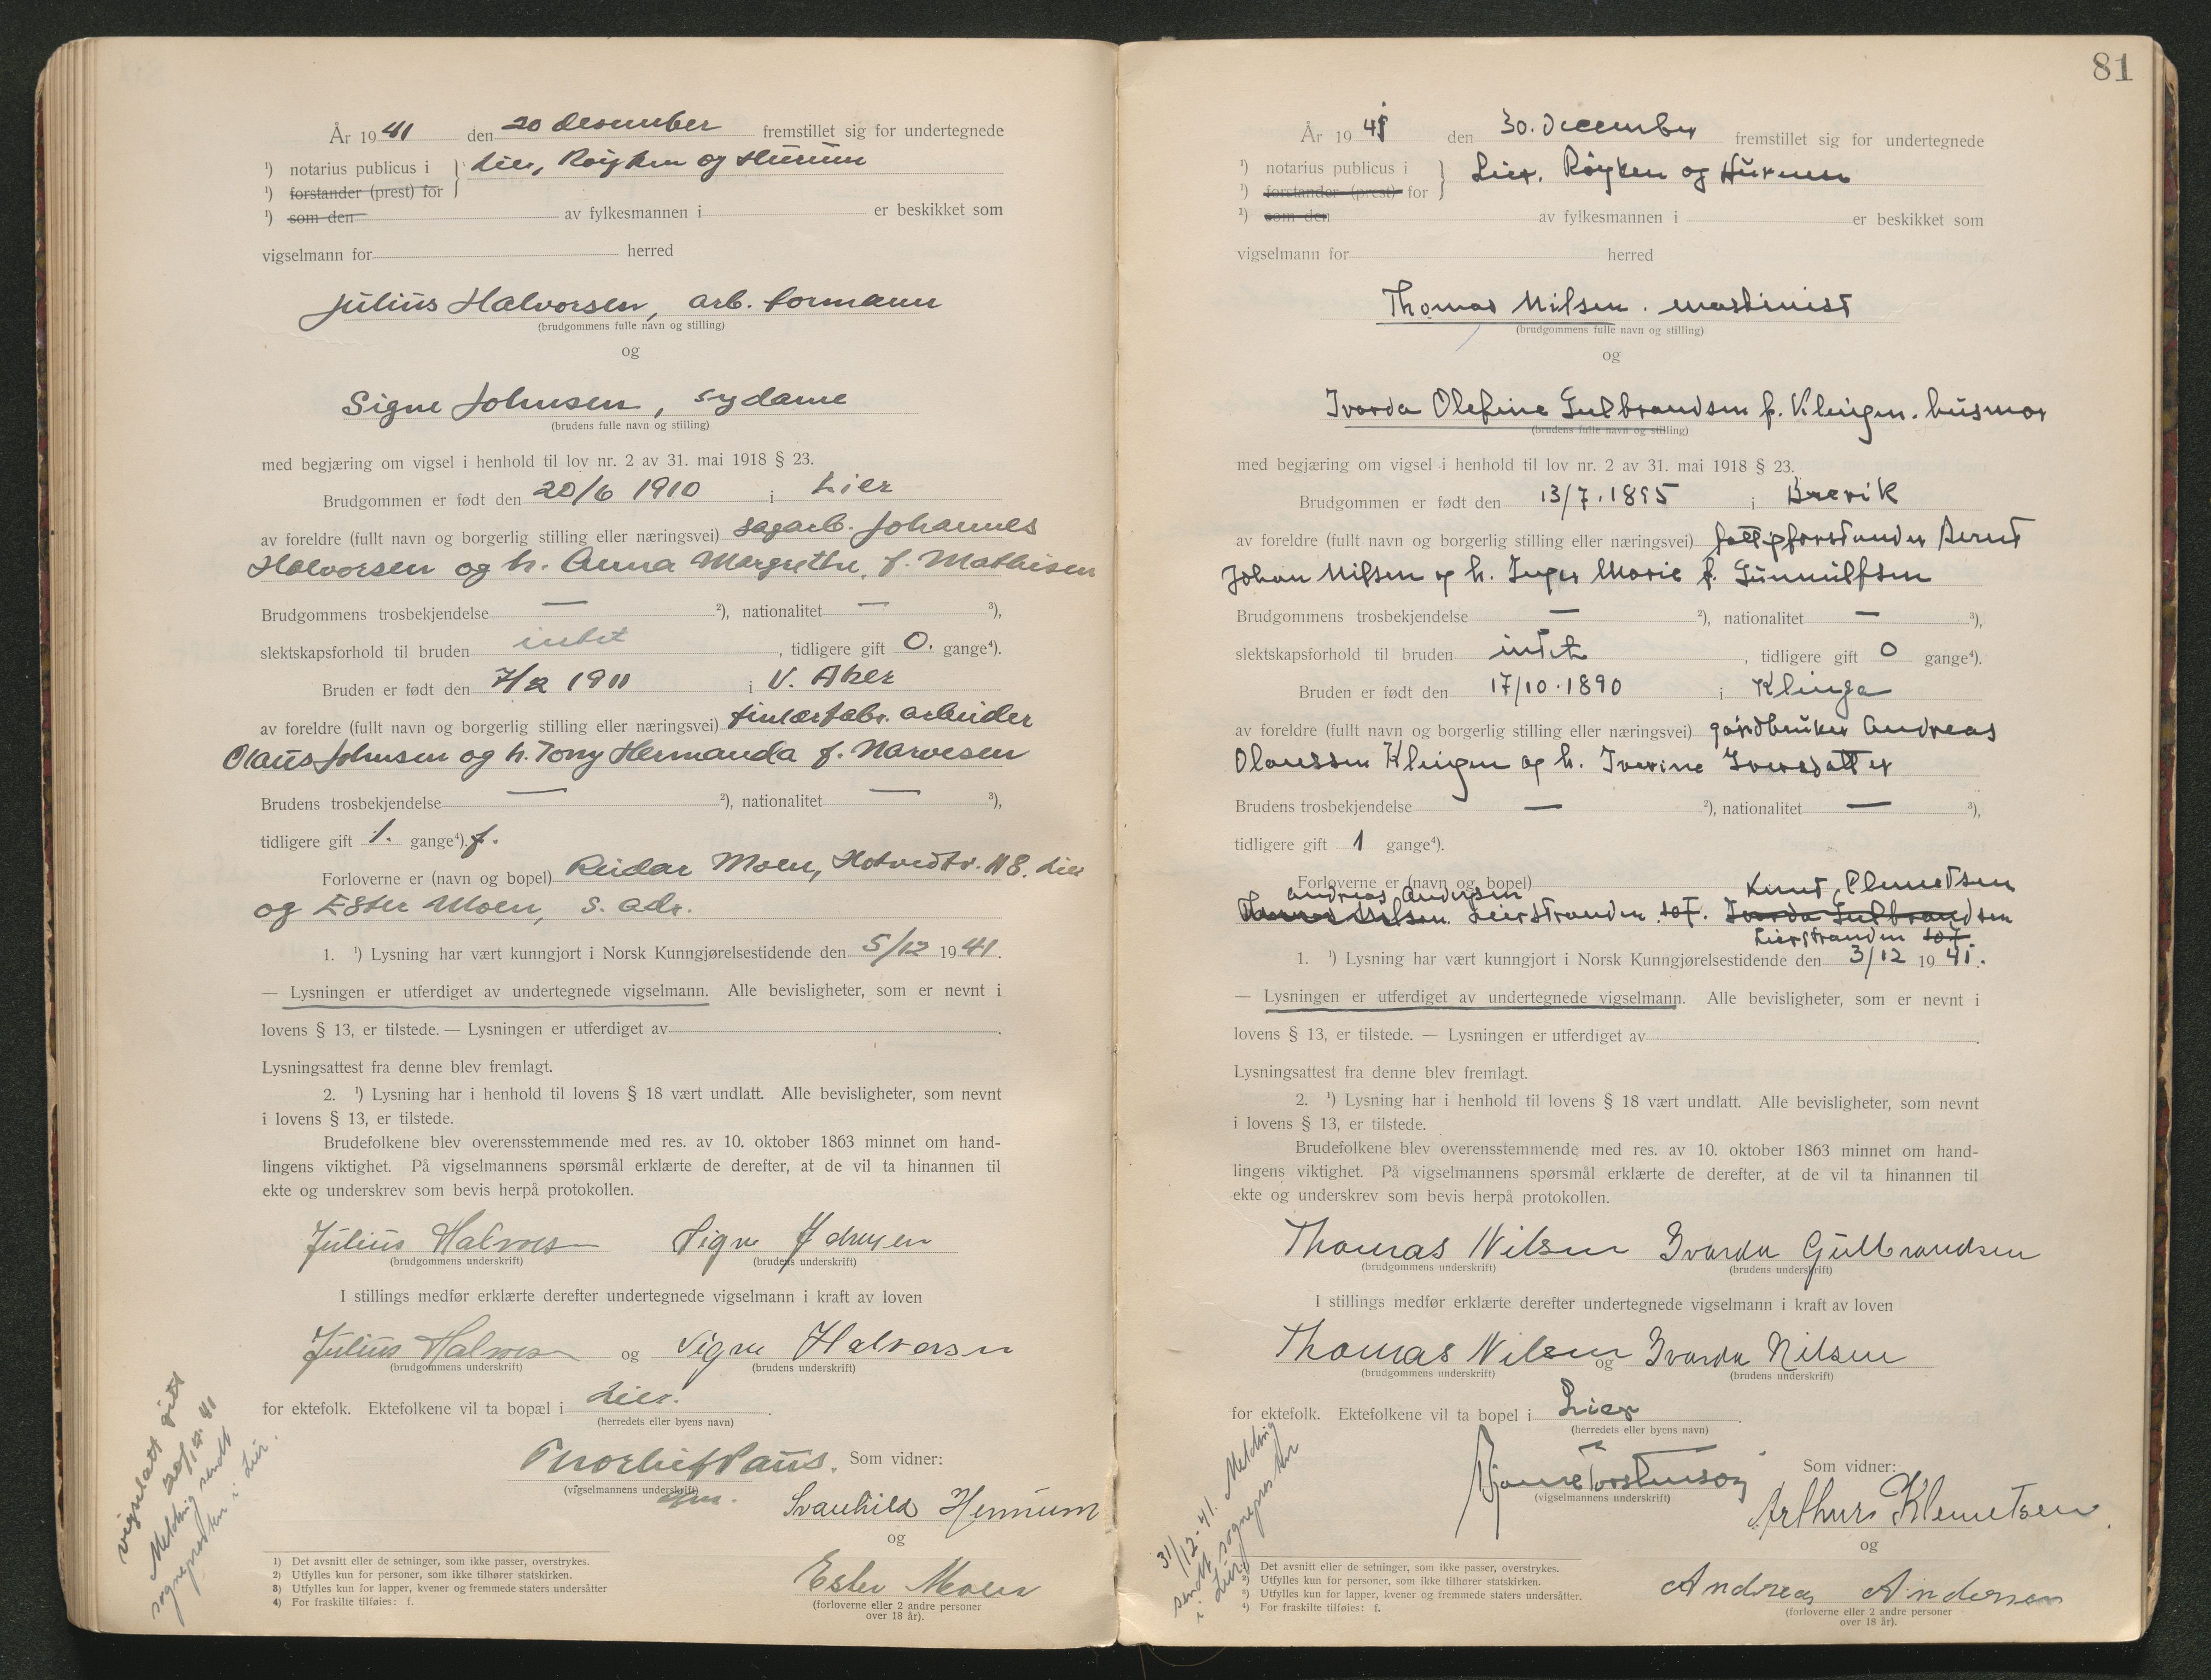 År 1941 den 20 desember fremstillet sig for undertegnede
¹) notarius publicus i Lier, Røyken og Hurum
¹) forstander (prest) for
¹) som den av fylkesmannen i er beskikket som
vigselmann for herred
Julius Halvorsen, arb. formann
(brudgommens fulle navn og stilling)
og
Signe Johnsen, sydame
(brudens fulle navn og stilling)
med begjæring om vigsel i henhold til lov nr. 2 av 31. mai 1918 § 23.
Brudgommen er født den 20/6 1910 i Lier
av foreldre (fullt navn og borgerlig stilling eller næringsvei) sagarb. Johannes
Halvorsen og h. Anna Margrethe, f. Mathisen
Brudgommens trosbekjendelse — ²), nationalitet — ³),
slektskapsforhold til bruden intet, tidligere gift 0. gange⁴).
Bruden er født den 7/2 1911 i V. Aker
av foreldre (fullt navn og borgerlig stilling eller næringsvei) arbeider
Olaus Johnsen og h. Tony Hermanda f. Narvesen
Brudens trosbekjendelse — ²), nationalitet — ³),
tidligere gift 1. gange⁴). f.
Forloverne er (navn og bopel) Reidar Moen, Hotvedtv. 118. Lier
og Ester Moen, s. adr.
1. ¹) Lysning har vært kunngjort i Norsk Kunngjørelsestidende den 5/12 1941.
— Lysningen er utferdiget av undertegnede vigselmann. Alle bevisligheter, som er nevnt i
lovens § 13, er tilstede. — Lysningen er utferdiget av
Lysningsattest fra denne blev fremlagt.
2. ¹) Lysning har i henhold til lovens § 18 vært undlatt. Alle bevisligheter, som nevnt
i lovens § 13, er tilstede.
Brudefolkene blev overensstemmende med res. av 10. oktober 1863 minnet om hand-
lingens viktighet. På vigselmannens spørsmål erklærte de derefter, at de vil ta hinannen til
ekte og underskrev som bevis herpå protokollen.
Julius Halvorsen Signe Johnsen
(brudgommens underskrift) (brudens underskrift)
I stillings medfør erklærte derefter undertegnede vigselmann i kraft av loven
Julius Halvorsen og Signe Halvorsen
(brudgommens underskrift) (brudens underskrift)
for ektefolk. Ektefolkene vil ta bopæl i Lier.
(herredets eller byens navn)
Thorleif Paus. Som vidner:
(vigselmannens underskrift)
Svanhild Hennum
og
Ester Moen
(forloverne eller 2 andre personer
over 18 år).
vigselatt gitt
20/12 41
Melding sendt
sogneprosten i Lier.
1) Det avsnitt eller de setninger, som ikke passer, overstrykes.
2) Utfylles kun for personer, som ikke tilhører statskirken.
3) Utfylles kun for lapper, kvener og fremmede staters undersåtter
4) For fraskilte tilføies: f.
81
År 1941 den 30. December fremstillet sig for undertegnede
¹) notarius publicus i Lier, Røyken og Hurum
¹) forstander (prest) for
¹) som den av fylkesmannen i er beskikket som
vigselmann for herred
Thomas Nilsen. maskinist
(brudgommens fulle navn og stilling)
og
Ivarda Olefine Gulbrandsen f. Klingen. husmor
(brudens fulle navn og stilling)
med begjæring om vigsel i henhold til lov nr. 2 av 31. mai 1918 § 23.
Brudgommen er født den 13/7. 1895 i Brevik
av foreldre (fullt navn og borgerlig stilling eller næringsvei) Bernt
Johan Nilsen og h. Inger Marie f. Gunnulfsen
Brudgommens trosbekjendelse — ²), nationalitet — ³),
slektskapsforhold til bruden intet, tidligere gift 0 gange⁴).
Bruden er født den 17/10. 1890 i Klinga
av foreldre (fullt navn og borgerlig stilling eller næringsvei) gårdbruker Andreas
Olaussen Klingen og h. Iverine Iversdatter
Brudens trosbekjendelse — ²), nationalitet — ³),
tidligere gift 1 gange⁴).
Forloverne er (navn og bopel) Knut Clemetsen
Andreas Andersen
Thomas Nilsen Lierstranden. Ivarda Gulbrandsen
Lierstranden
1. ¹) Lysning har vært kunngjort i Norsk Kunngjørelsestidende den 3/12 1941.
— Lysningen er utferdiget av undertegnede vigselmann. Alle bevisligheter, som er nevnt i
lovens § 13, er tilstede. — Lysningen er utferdiget av
Lysningsattest fra denne blev fremlagt.
2. ¹) Lysning har i henhold til lovens § 18 vært undlatt. Alle bevisligheter, som nevnt
i lovens § 13, er tilstede.
Brudefolkene blev overensstemmende med res. av 10. oktober 1863 minnet om hand-
lingens viktighet. På vigselmannens spørsmål erklærte de derefter, at de vil ta hinannen til
ekte og underskrev som bevis herpå protokollen.
Thomas Nilsen Ivarda Gulbrandsen
(brudgommens underskrift) (brudens underskrift)
I stillings medfør erklærte derefter undertegnede vigselmann i kraft av loven
Thomas Nilsen og Ivarda Nilsen
(brudgommens underskrift) (brudens underskrift)
for ektefolk. Ektefolkene vil ta bopel i Lier
(herredets eller byens navn)
Bjarne Torstenson Som vidner:
(vigselmannens underskrift)
Arthur Klemetsen
og
Andreas Andersen
(forloverne eller 2 andre personer
over 18 år).
31/12-41. Melding
sendt sogneprosten
i Lier
¹) Det avsnitt eller de setninger, som ikke passer, overstrykes.
²) Utfylles kun for personer, som ikke tilhører statskirken.
³) Utfylles kun for lapper, kvener og fremmede staters undersåtter.
⁴) For fraskilte tilføies: f.